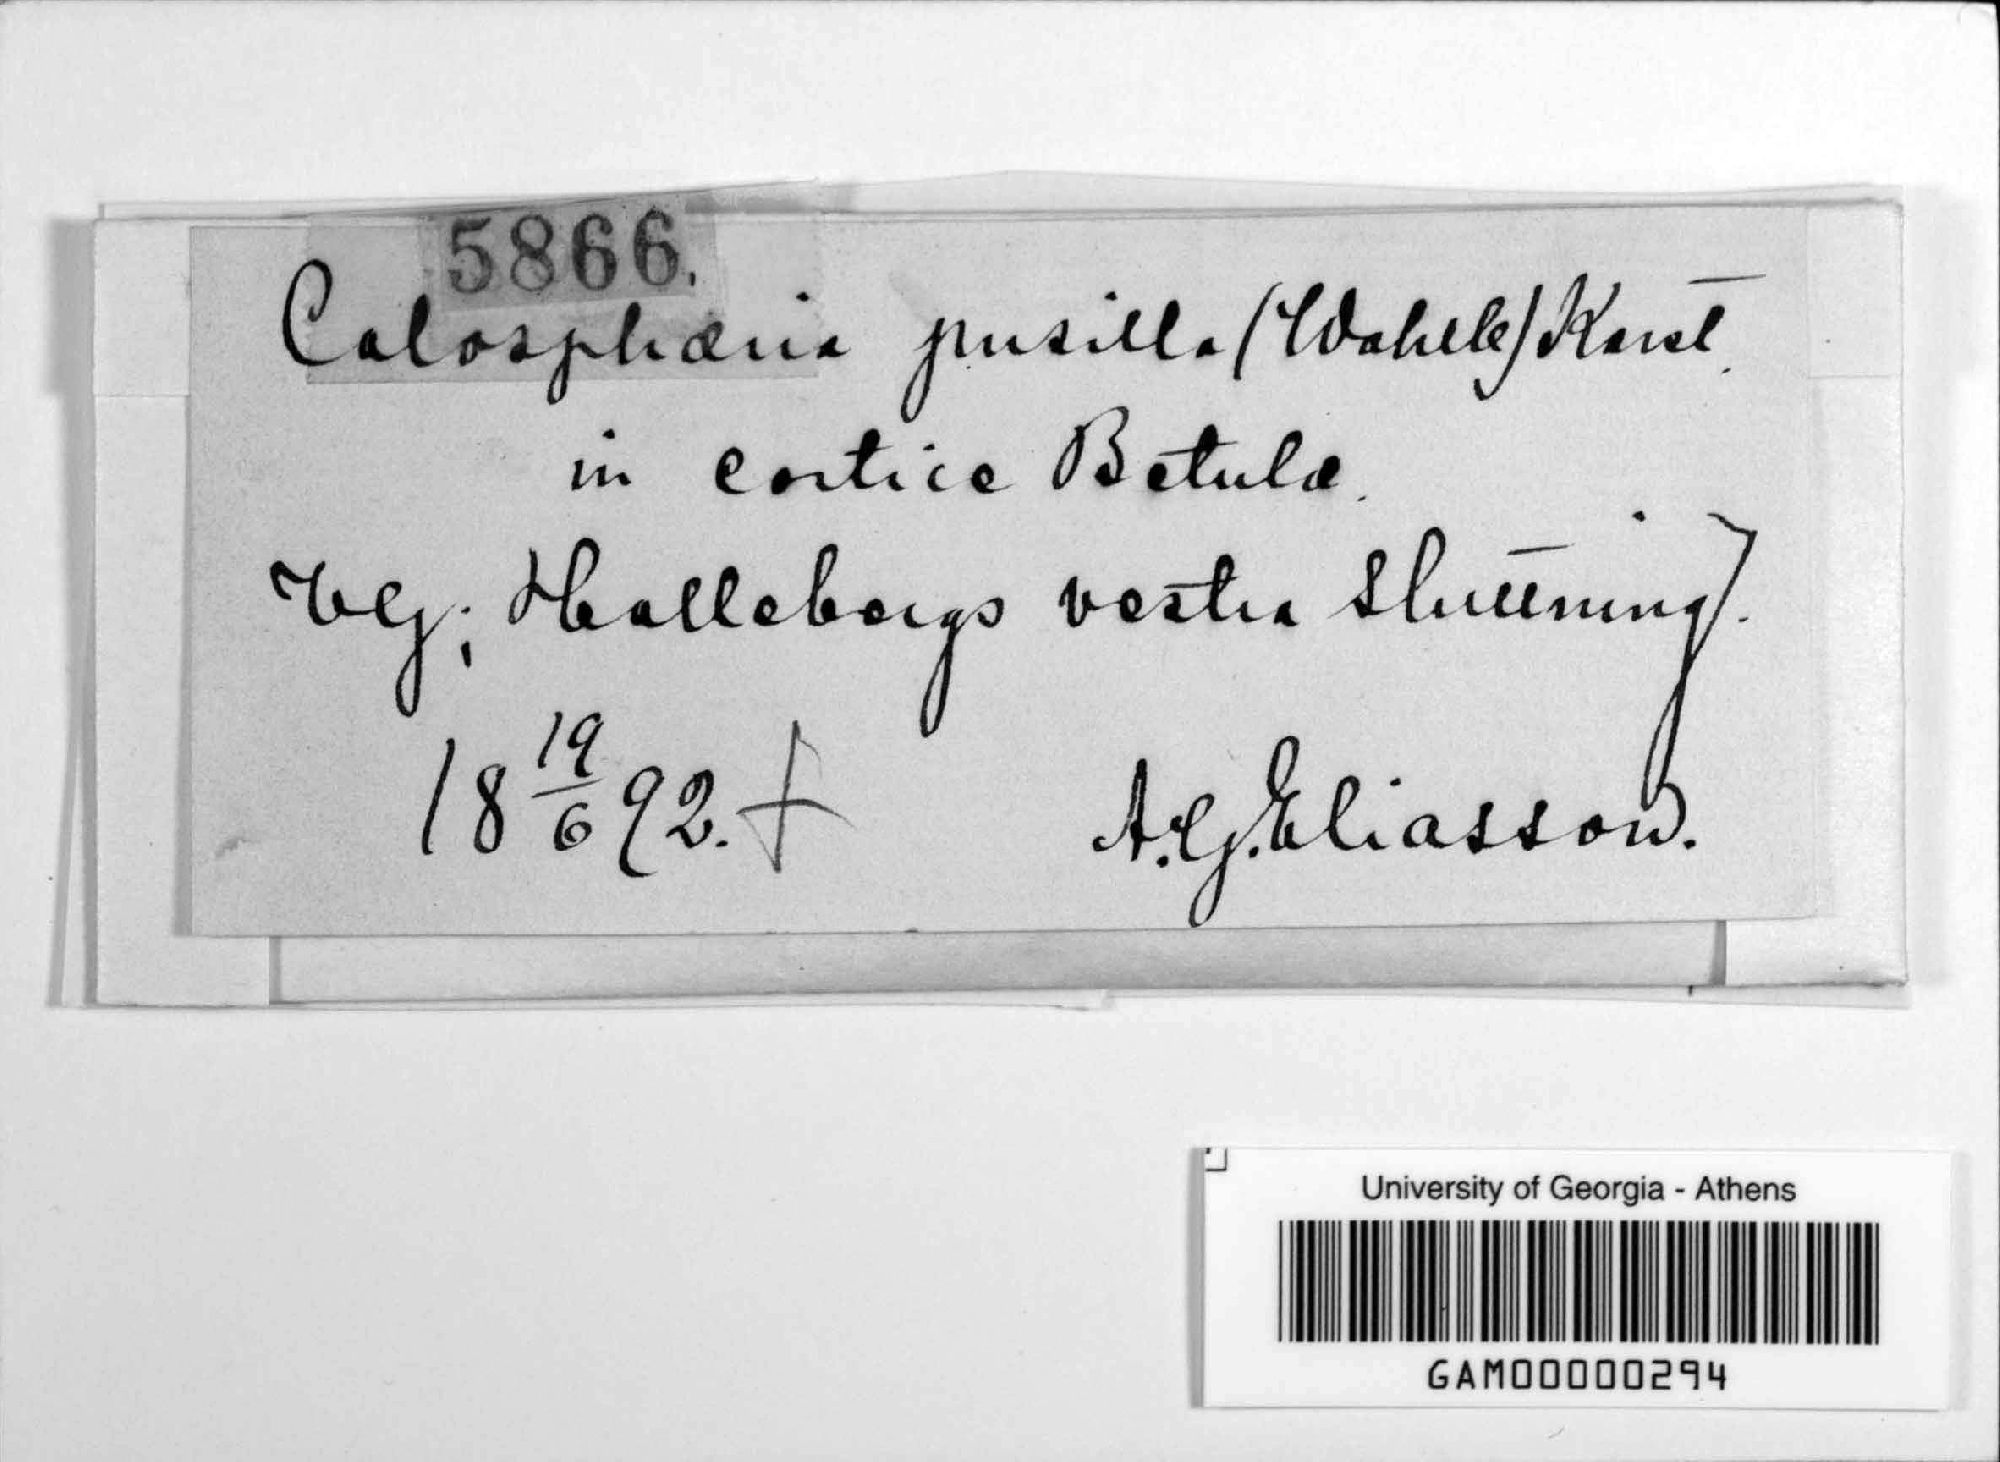 5866.
Calosphæria pusilla (Wahlb) Karst.
in cortice Betulæ.
Vg; Hallebergs vestra sluttning.
18 19/6 92. A. G. Eliasson.
University of Georgia - Athens
GAM00000294